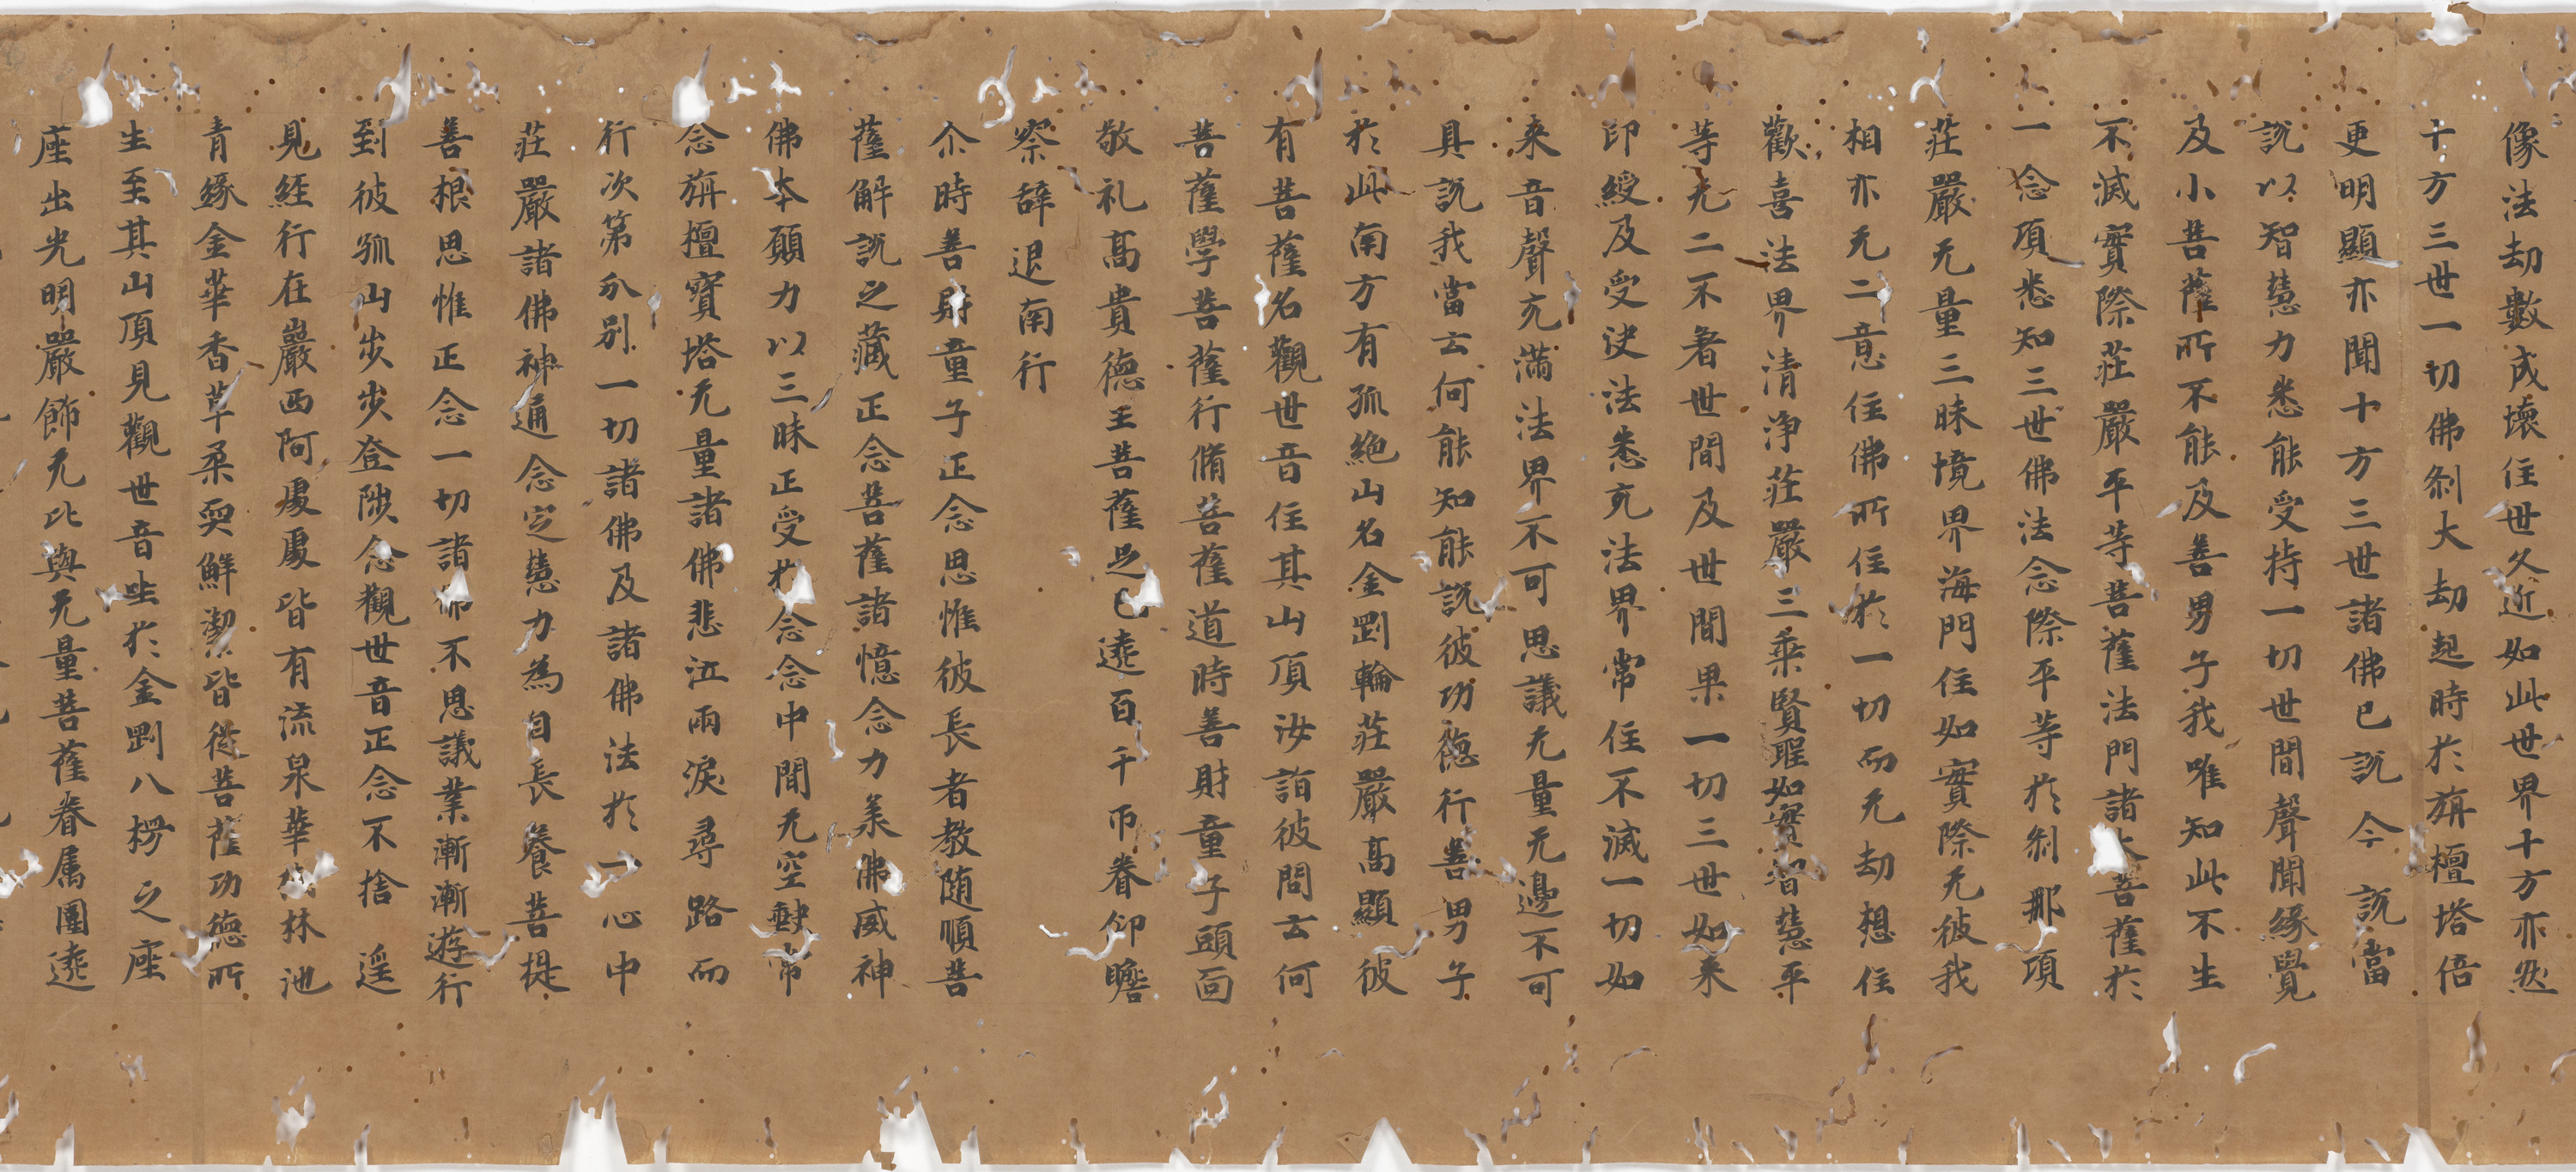 像法劫數成壞住世久近如此世界十方亦然
十方三世一切佛刹大劫起時於旃檀塔倍
更明顯亦聞十方三世諸佛已說今說當
說以智慧力悉能受持一切世間聲聞緣覺
及小菩薩所不能及善男子我唯知此不生
不滅實際莊嚴平等菩薩法門諸大菩薩於
一念頃悉知三世佛法念際平等於刹那頃
莊嚴无量三昧境界海門住如實際无彼我
相亦无二意住佛所住於一切而无劫想住
歡喜法界清淨莊嚴三乘賢聖如實智慧平
等无二不著世間及世間果一切三世如来
印綬及受決法悉充法界常住不滅一切如
来音聲充滿法界不可思議无量无邊不可
具說我當云何能知能說彼功德行善男子
於此南方有孤絶山名金剛輪莊嚴高顯彼
有菩薩名觀世音住其山頂汝詣彼問云何
菩薩學菩薩行脩菩薩道時善財童子頭面
敬礼高貴德王菩薩足已遶百千帀眷仰瞻
察辞退南行
尒時善財童子正念思惟彼長者教随順菩
薩解說之藏正念菩薩諸憶念力系佛威神
佛本願力以三昧正受於念念中間无空缺常
念旃檀寶塔无量諸佛悲泣雨淚尋路而
行次第分别一切諸佛及諸佛法於一心中
莊嚴諸佛神通念定慧力為自長養菩提
善根思惟正念一切諸佛不思議業漸漸遊行
到彼孤山步步登陟念觀世音正念不捨遥
見經行在巖西阿處處皆有流泉華樹林池
青緣金華香草柔耎鮮潔皆從菩薩功德所
生至其山頂見觀世音坐於金剛八楞之座
座出光明嚴飾无比與无量菩薩眷属圍遶